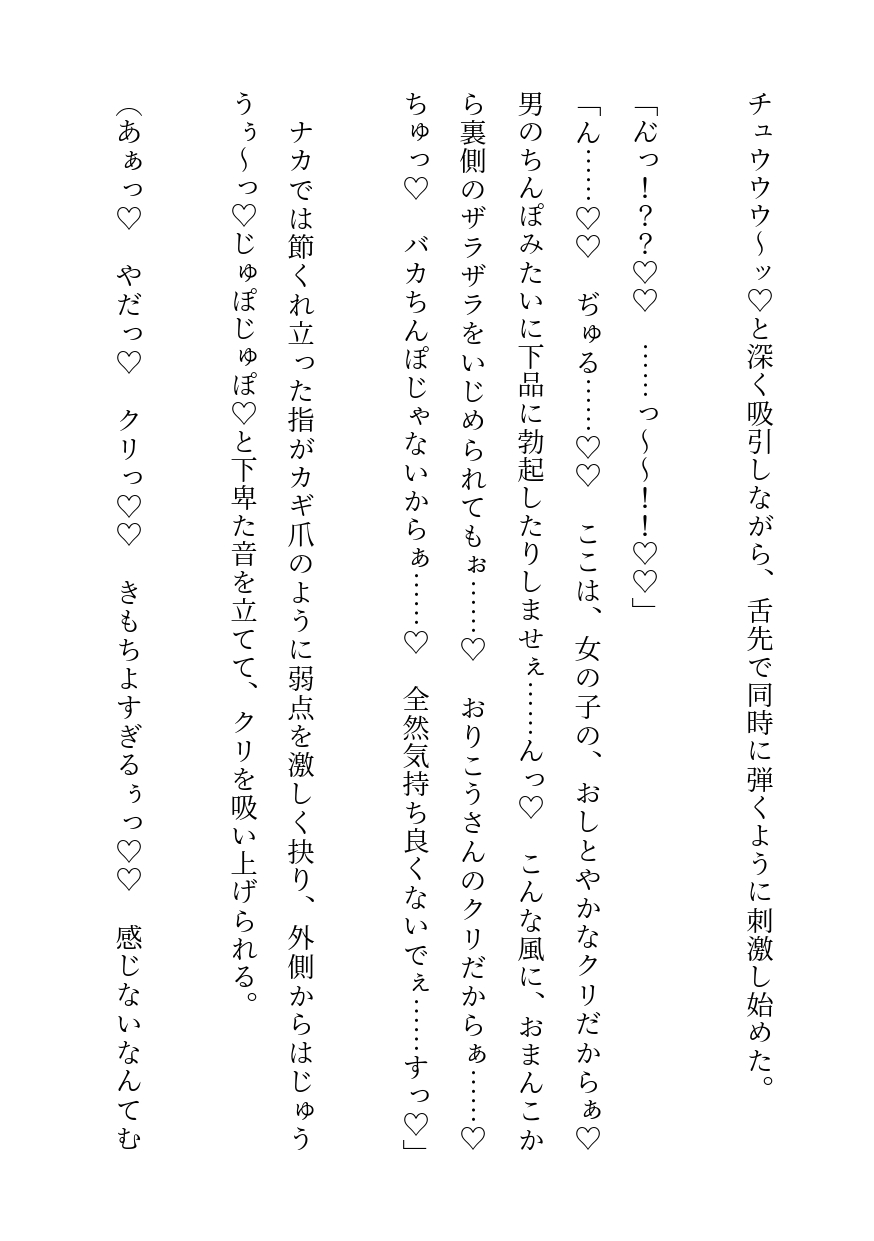 チュウウウ～ッ♡と深く吸引しながら、舌先で同時に弾くように刺激し始めた。
「ん゛っ！？？♡♡　……っ～～！！♡♡」
「ん……♡♡　ぢゅる……♡♡　ここは、女の子の、おしとやかなクリだからぁ♡
男のちんぽみたいに下品に勃起したりしませぇ……んっ♡　こんな風に、おまんこか
ら裏側のザラザラをいじめられてもぉ……♡　おりこうさんのクリだからぁ……♡
ちゅっ♡　バカちんぽじゃないからぁ……♡　全然気持ち良くないでぇ……すっ♡」
　ナカでは節くれ立った指がカギ爪のように弱点を激しく抉り、外側からはじゅう
うぅ～っ♡じゅぽじゅぽ♡と下卑た音を立てて、クリを吸い上げられる。
（あぁっ♡　やだっ♡　クリっ♡♡　きもちよすぎるぅっ♡♡　感じないなんてむ